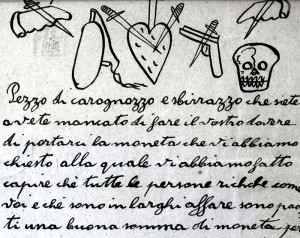 Pezzo di carognozzo e sbirrazzo che siete
avete mancato di fare il vostro dovere
di portarci la moneta che vi abbiamo
chiesto alla quale vi abbiamo fatto
capire ché tutte le persone richche com
voi e ché sono in larghi affare sono pag
ti una buona somma di moneta per